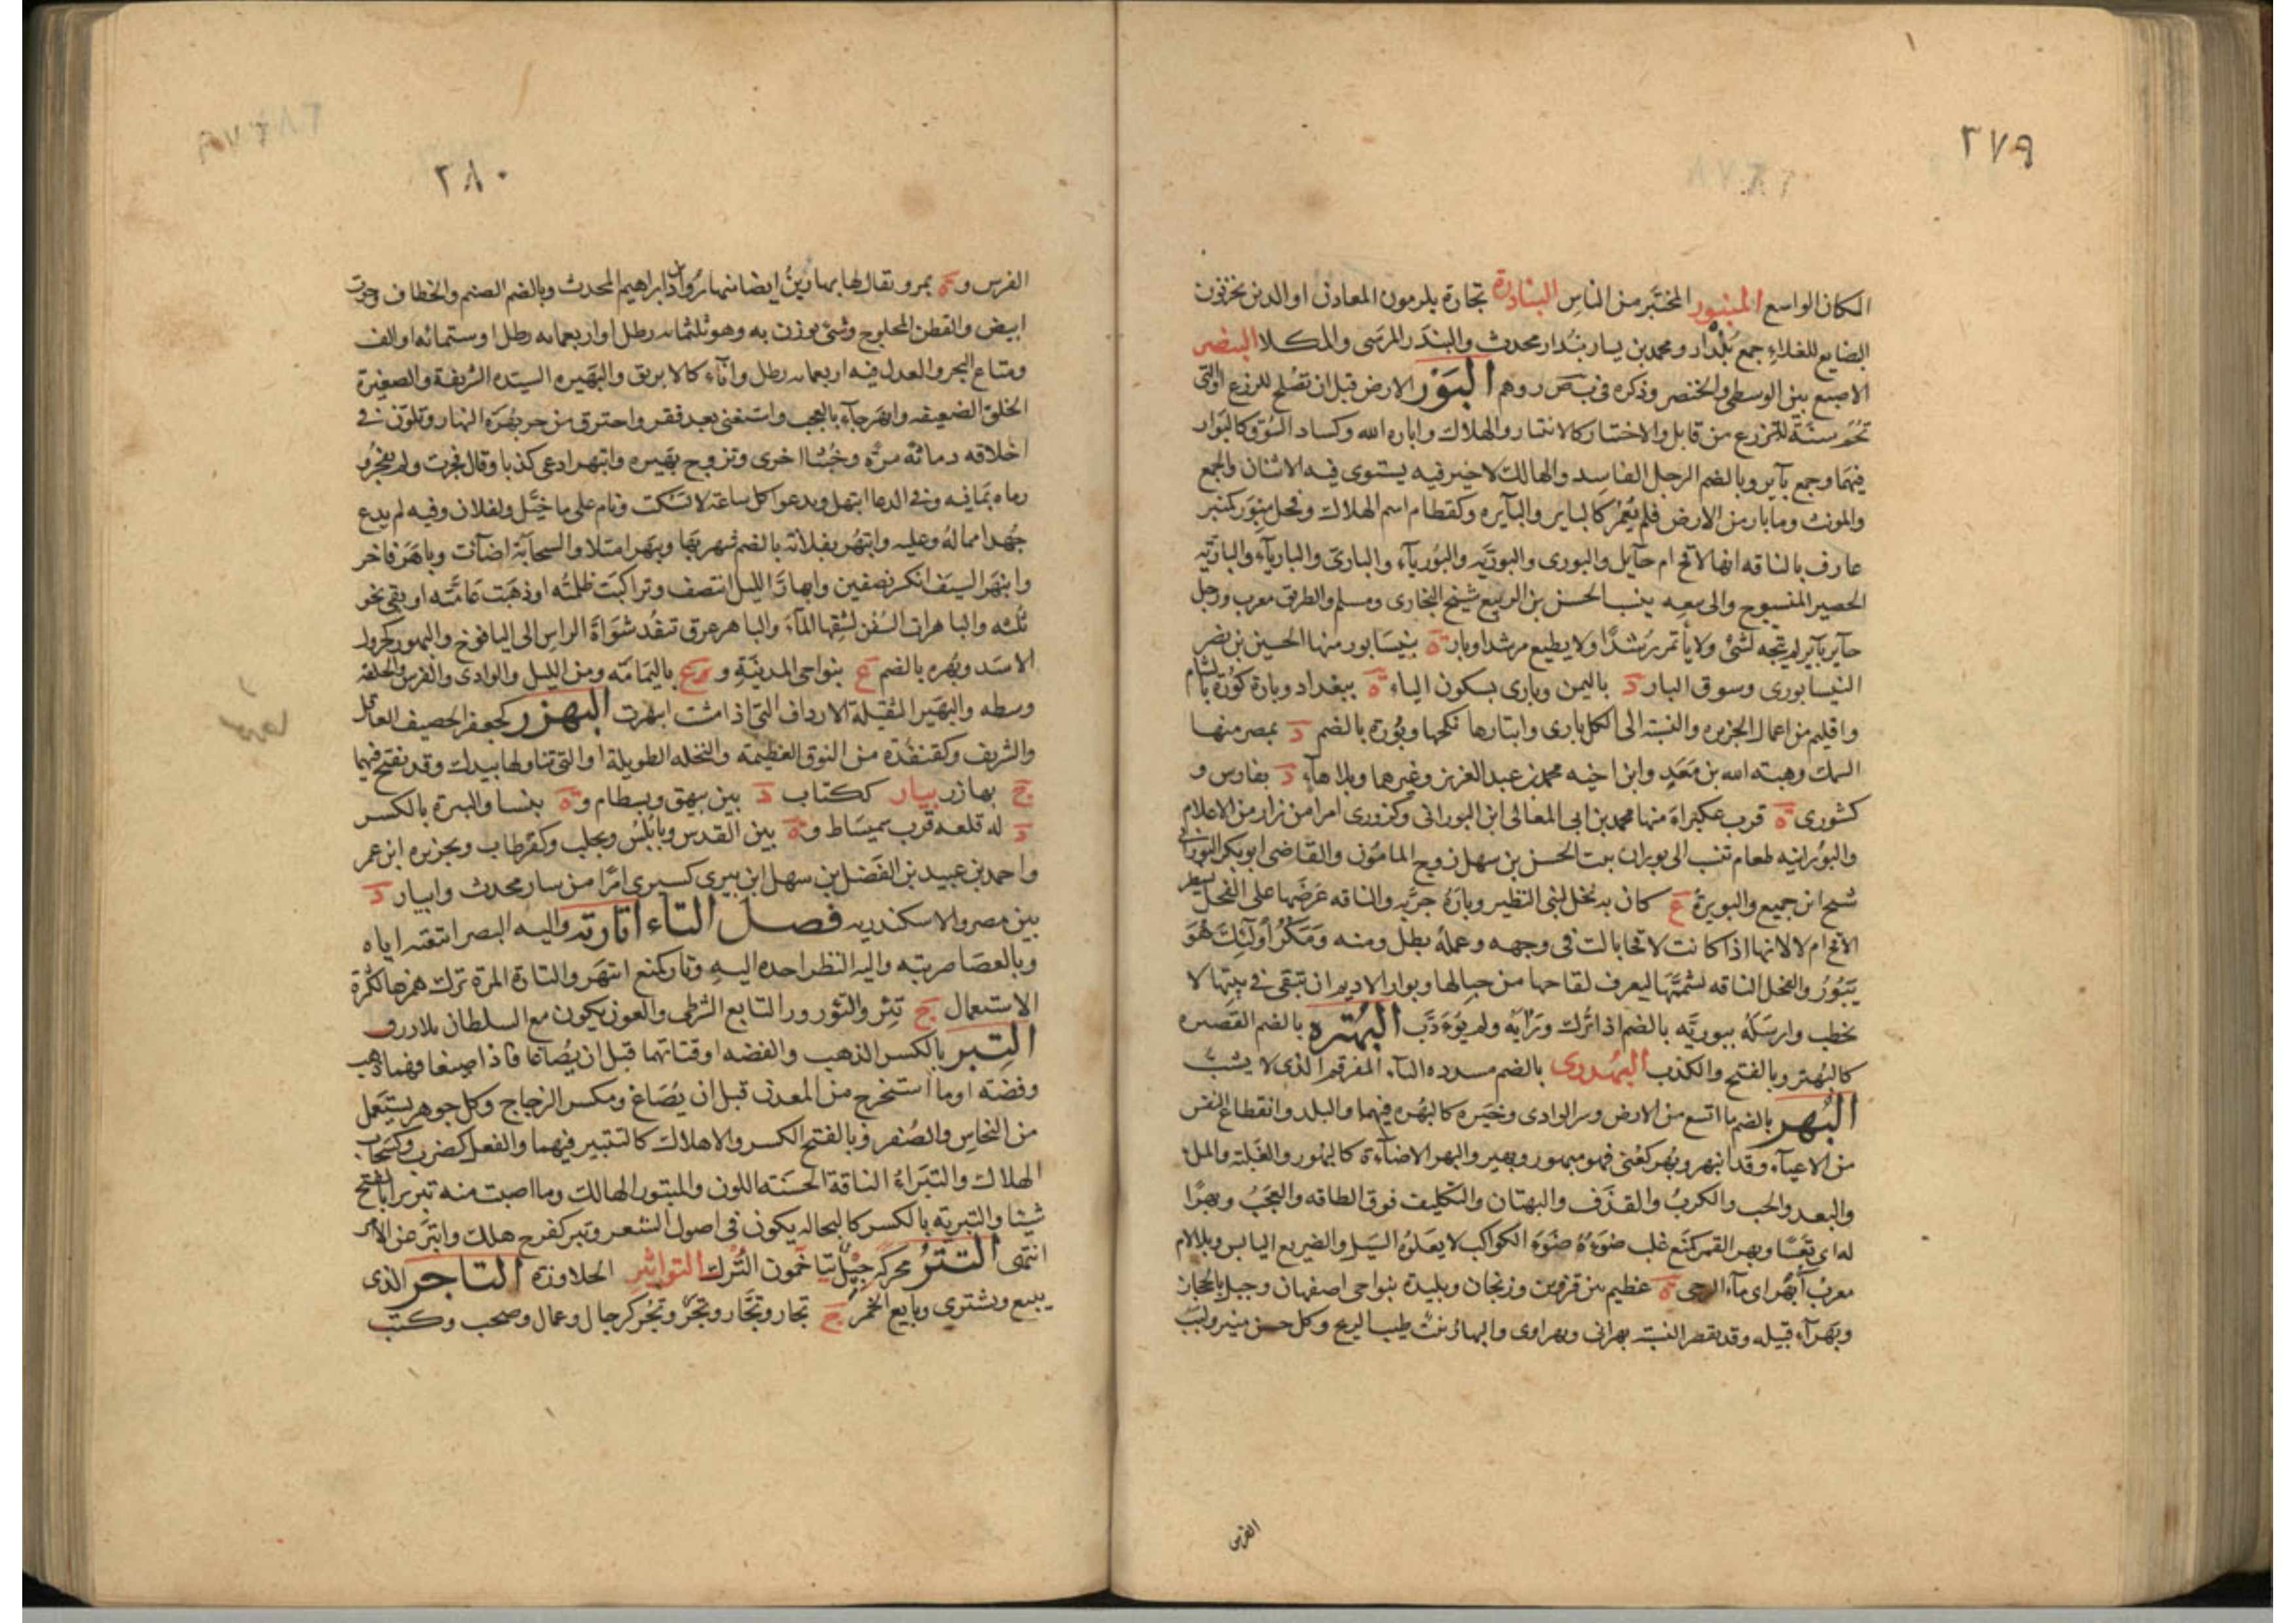 ٢٧٩
المكان الواسع المبنبور المختبر من الناس البنادرة تجارة يلزمون المعادن او الذين يخزنون
البضايع للغلاء جمع بندار ومحمد بن بندار محدث والبندر المرسى والمكلا البنصر
الاصبع بين الوسطى والخنصر وذكره فى ب ص ر وهم البور الارض قبل ان تصلح للزرع او التى
تجم سنة لتزرع من قابل والاختبار كالابتيار والهلاك واباره الله وكساد السوق كالبوار
فيهما وجمع بآير وبالضم الرجل الفاسد والهالك لا خير فيه يستوى فيه الاثنان والجمع
والمونث وما بار من الارض فلم يعمر كالباير والبآيره وكقطام اسم الهلاك وفحل مبور كمنبر
عارف بالناقه انها لاقح ام حآيل والبورى والبوريه والبوريآء والبارى والباريآء والباريه
الحصير المنسوج والى بيعه ينسب الحسن بن الربيع شيخ البخارى ومسلم والطريق معرب ورجل
حآير بآير لم يتجه لشئ ولا يأتمر رشدا ولا يطيع مرشدا وبار ة بنيسابور منها الحسين بن نصر
النيسابورى وسوق البار د باليمن وبارى بسكون الياء ة ببغداد وبارة كورة بالشام
واقليم من اعمال الجزيره والنسبة الى الكل بارى وابتارها نكحها وبورة بالضم د بمصر منها
السمك وهبته الله بن معد وابن اخيه محمد بن عبد العزيز وغيرهما وبلا هآء د بفارس و
كشورى ة قرب عكبراء منها محمد بن ابى المعالى ابن البورانى وكزورى امرا من زار من الاعلام
والبورانيه طعام تنسب الى بوران بنت الحسن بن سهل زوج المامون والقاضى ابو بكر البورانى
شيخ ابن جميع والبويرة ع كان به نخل لبنى النظير وباره جربه والناقه عرضها على الفحل لينظر
الاقح ام لا لانها اذا كانت لاقحا بالت فى وجهه وعمله بطل ومنه ومكر اولئك هو
يبور والفحل الناقه تشممها ليعرف لقاحها من حيالها وبوار الايم ان تبقى فى بيتها لا
تخطب وارسله ببوريه بالضم اذا ترك ورأيه ولم يودب البهترة بالضم القصيره
كالبهتر وبالفتح والكذب البهدرى بالضم مسدده اليآء المقرقم الذى لا يشب
البهر بالضم ما اتسع من الارض وسر الوادى وخيره كالبهره فيهما والبلد وانقطاع النفس
من الاعيآء وقد انبهر وبهر كعنى فهو مبهور وبهير والبهر الاضآءة كالبهور والغلبة والملء
والبعد والحب والكرب والقذف والبهتان والتكليف فوق الطاقه والعجب وبهرا
له اى تعسا وبهر القمر كمنع غلب ضوءه ضوء الكواكب لا يعلوه السيل والضريع اليابس وبلالام
معرب آبهر اى مآء الرحى ة عظيم بين قزوين وزنجان وبليدة بنواحى اصفهان وجبل بالحجاز
وبهرآء قبيله وقد يقصر النسبة بهرانى وبهراوى والبهار نبت طيب الريح وكل حسن منير ولبب
الفرس
٢٨٠
الفرس و ة بمرو تقال لها بهارين ايضا منها رواد ابراهيم المحدث وبالضم الصنم والخطاف وحوت
ابيض والقطن المحلوج وشئ يوزن به وهو ثلثمائه رطل او اربعمايه رطل او ستمائه او الف
ومتاع البحر والعدل فيه اربعمايه رطل وانآء كالابريق والبهيره السيده الشريفة والصغيرة
الخلق الضعيفه وابهر جآء بالعجب واستغنى بعد فقر واحترق من حر بهره النهار وتلون فى
اخلاقه دماثه مره وخبثا اخرى وتزوج بهيره وابتهر ادعى كذبا وقال فجرت ولم يفجر و
رماه بما فيه وفى الدعا ابتهل ويدعوا كل ساعة لا تسكت ونام على ما خيل ولفلان وفيه لم يدع
جهدا مما له وعليه وابتهر بفلانه بالضم شهر بها وبهر امتلا والسحابة اضآت وباهر فاخر
وانبهر السيف انكسر نصفين وابهار الليل انتصف وتراكبت ظلمته او ذهبت عامته او بقى نحو
ثلثه والباهرات السفن لشقها المآء والباهر عرق تنفذ شواة الراس الى اليافوخ والبهور كجرول
الاسد وبهره بالضم ع بنواحى المدينة و ع باليمامه ومن الليل والوادى والفرس والحلقه
وسطه والبهير الثقيلة الارداف التى اذا مشت ابهرت البهزر كجعفر الحصيف العاقل
والشريف وكقنفذة من النوق العظيمه والنخله الطويلة او التى تناولها بيدك وقد تفتح فيهما
ج بهازر بيار ككتاب د بين بيهق وبسطام و ة بنسا والبيرة بالكسر
د له قلعه قرب سميساط و ة بين القدس ونابلس وبحلب وكفرطاب وبجزيره ابن عمر
واحمد بن عبيد بن الفضل بن سهل ابن بيرى كسيرى امرا من سار محدث وابيار د
بين مصر والاسكندريه فصل التاء اتارته واليه البصر اتبعته اياه
وبالعصا ضربته واليه النظر احده اليه وتار كمنع انتهر والتارة المرة ترك همزها لكثرة
الاستعمال ج تئر والتؤرور التابع الشرطى والعون يكون مع السلطان بلا رزق
التبر بالكسر الذهب والفضه او فتاتهما قبل ان يصاغا فاذا صيغا فهما ذهب
وفضة او ما استخرج من المعدن قبل ان يصاغ ومكسر الزجاج وكل جوهر يستعمل
من النحاس والصفر وبالفتح الكسر والاهلاك كالتتبير فيهما والفعل كضرب وكسحاب
الهلاك والتبراء الناقة الحسنه اللون والمبتور الهالك وما اصبت منه تبريرا بالفتح
شيئا والتبريه بالكسر كالنخاله يكون فى اصول الشعر وتبر كفرح هلك واتبر عن الامر
انتهى التتر محركة جيل يتاخمون الترك التواثير الجلاوزه التاجر الذى
يبيع ويشترى وبايع الخمر ج تجار وتجار وتجر وتجر كرجال وعمال وصحب وكتب